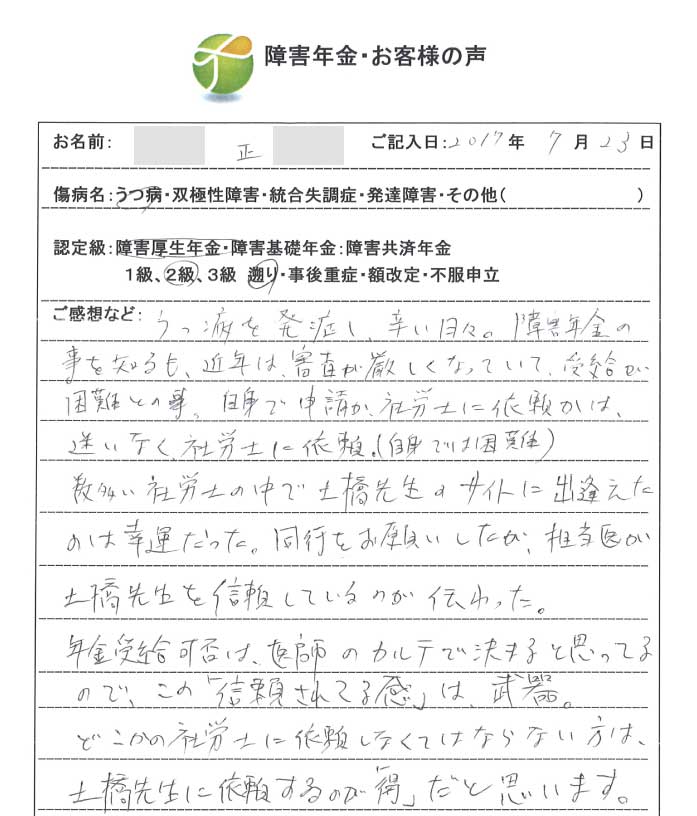 障害年金・お客様の声
お名前: 正 ご記入日:2017年 7月23日
傷病名:うつ病・双極性障害・統合失調症・発達障害・その他( )
認定級:障害厚生年金・障害基礎年金:障害共済年金
1級、2級、3級 遡り・事後重症・額改定・不服申立
ご感想など: うつ病を発症し、辛い日々。障害年金の
事を知るも、近年は、審査が厳しくなっていて、受給が
困難との事。自身で申請か、社労士に依頼かは、
迷いなく、社労士に依頼。(自身では困難)
数多い社労士の中で土橋先生のサイトに出逢えた
のは幸運だった。同行をお願いしたが、担当医が
土橋先生を信頼しているのが伝わった。
年金受給可否は、医師のカルテで決まると思ってる
ので、この「信頼されてる感」は、武器。
どこかの社労士に依頼しなくてはならない方は、
土橋先生に依頼するのが「得」だと思います。